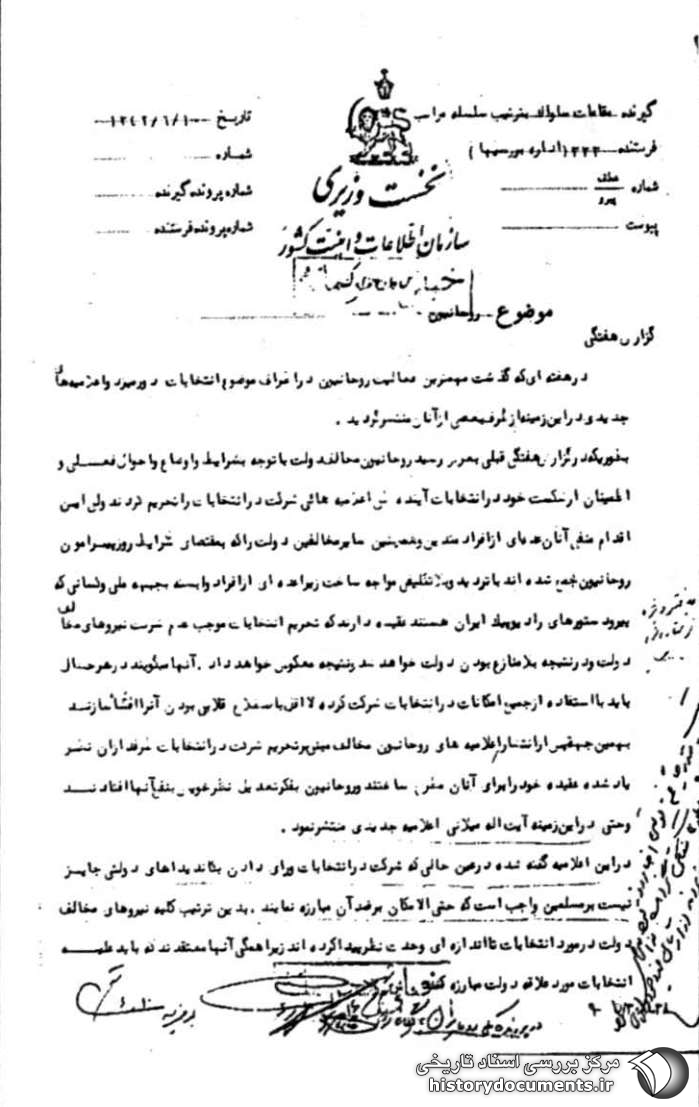 گیرنده مقامات ساواک بترتیب سلسله مراتب
فرستنده ۳۳۳ (اداره بررسیها)
شماره عطف پیرو
پیوست
تاریخ ۱۳۴۲/۶/۱۰
شماره
شماره پرونده گیرنده
شماره پرونده فرستنده
نخست وزیری
سازمان اطلاعات و امنیت کشور
موضوع روحانیون
گزارش هفتگی
در هفته ای که گذشت مهمترین فعالیت روحانیون در اطراف موضوع انتخابات دور میزد و اعلامیه های
جدیدی در این زمینه از طرف بعضی از آنان منتشر گردید .
بطوریکه در گزارش هفتگی قبلی بعرض رسید روحانیون مخالف دولت با توجه بشرایط و اوضاع و احوال فعلی و
اطمینان از شکست خود در انتخابات آینده طی اعلامیه هائی شرکت در انتخابات را تحریم کردند ولی این
اقدام منفی آنان عده ای از افراد متدین و همچنین سایر مخالفین دولت را که بمقتضای شرایط روز پیرامون
روحانیون جمع شده اند با تردید و بلاتکلیفی مواجه ساخت زیرا عده ای از افراد وابسته بجبهه ملی و کسانی که
پیرو دستورهای رادیو پیک ایران هستند عقیده دارند که تحریم انتخابات موجب عدم شرکت نیروهای مخالف
دولت و در نتیجه بلامنازع بودن دولت خواهد شد و نتیجه معکوس خواهد داد . آنها میگویند در هر حال
باید با استفاده از جمیع امکانات در انتخابات شرکت کرده لااقل باصطلاح قلابی بودن آنرا افشاء سازند
بهمین جهت پس از انتشار اعلامیه های روحانیون مخالف مبنی بر تحریم شرکت در انتخابات طرفداران نظر
یاد شده عقیده خود را برای آنان مطرح ساختند و روحانیون بفکر تعدیل نظر خویش بنفع آنها افتادند
و حتی در این زمینه آیت اله میلانی اعلامیه جدیدی منتشر نمود .
در این اعلامیه گفته شده در عین حالی که شرکت در انتخابات و رای دادن بکاندیداهای دولتی جایز
نیست بر مسلمین واجب است که حتی الامکان بر ضد آن مبارزه نمایند . بدین ترتیب کلیه نیروهای مخالف
دولت در مورد انتخابات تا اندازه ای وحدت نظر پیدا کرده اند زیرا همگی آنها معتقدند که باید علیه
انتخابات مورد علاقه دولت مبارزه کنند
مرکز بررسی اسناد تاریخی
historydocuments.ir